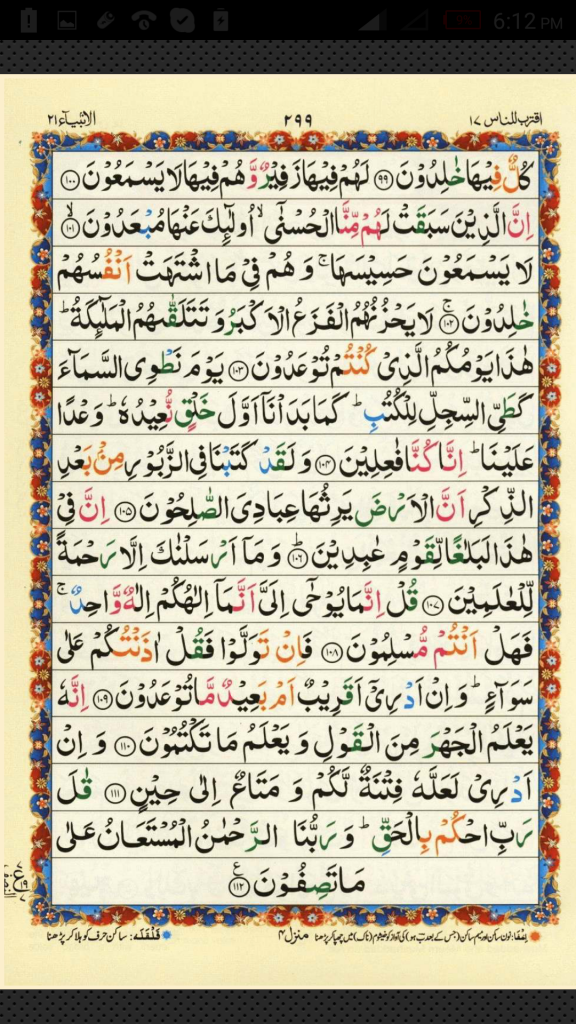 6:12 PM
اقترب للناس ١٧ ٢٩٩ الانبیآء ٢١
كُلٌّ فِيْهَا خٰلِدُوْنَ ﴿٩٩﴾ لَهُمْ فِيْهَا زَفِيْرٌ وَّ هُمْ فِيْهَا لَا يَسْمَعُوْنَ ﴿١٠٠﴾
اِنَّ الَّذِيْنَ سَبَقَتْ لَهُمْ مِّنَّا الْحُسْنٰٓى ۙ اُولٰٓئِكَ عَنْهَا مُبْعَدُوْنَ ﴿١٠١﴾ ۙ
لَا يَسْمَعُوْنَ حَسِيْسَهَا ۚ وَ هُمْ فِيْ مَا اشْتَهَتْ اَنْفُسُهُمْ
خٰلِدُوْنَ ﴿١٠٢﴾ ۚ لَا يَحْزُنُهُمُ الْفَزَعُ الْاَكْبَرُ وَ تَتَلَقّٰىهُمُ الْمَلٰٓئِكَةُ ؕ
هٰذَا يَوْمُكُمُ الَّذِيْ كُنْتُمْ تُوْعَدُوْنَ ﴿١٠٣﴾ يَوْمَ نَطْوِي السَّمَآءَ
كَطَيِّ السِّجِلِّ لِلْكُتُبِ ؕ كَمَا بَدَاْنَاۤ اَوَّلَ خَلْقٍ نُّعِيْدُهٗ ؕ وَعْدًا
عَلَيْنَا ؕ اِنَّا كُنَّا فٰعِلِيْنَ ﴿١٠٤﴾ وَ لَقَدْ كَتَبْنَا فِي الزَّبُوْرِ مِنْۢ بَعْدِ
الذِّكْرِ اَنَّ الْاَرْضَ يَرِثُهَا عِبَادِيَ الصّٰلِحُوْنَ ﴿١٠٥﴾ اِنَّ فِيْ
هٰذَا لَبَلٰغًا لِّقَوْمٍ عٰبِدِيْنَ ﴿١٠٦﴾ ؕ وَ مَاۤ اَرْسَلْنٰكَ اِلَّا رَحْمَةً
لِّلْعٰلَمِيْنَ ﴿١٠٧﴾ قُلْ اِنَّمَا يُوْحٰۤى اِلَيَّ اَنَّمَاۤ اِلٰهُكُمْ اِلٰهٌ وَّاحِدٌ ۚ
فَهَلْ اَنْتُمْ مُّسْلِمُوْنَ ﴿١٠٨﴾ فَاِنْ تَوَلَّوْا فَقُلْ اٰذَنْتُكُمْ عَلٰى
سَوَآءٍ ؕ وَ اِنْ اَدْرِيْۤ اَقَرِيْبٌ اَمْ بَعِيْدٌ مَّا تُوْعَدُوْنَ ﴿١٠٩﴾ اِنَّهٗ
يَعْلَمُ الْجَهْرَ مِنَ الْقَوْلِ وَ يَعْلَمُ مَا تَكْتُمُوْنَ ﴿١١٠﴾ وَ اِنْ
اَدْرِيْ لَعَلَّهٗ فِتْنَةٌ لَّكُمْ وَ مَتَاعٌ اِلٰى حِيْنٍ ﴿١١١﴾ قٰلَ
رَبِّ احْكُمْ بِالْحَقِّ ؕ وَ رَبُّنَا الرَّحْمٰنُ الْمُسْتَعَانُ عَلٰى
مَا تَصِفُوْنَ ﴿١١٢﴾ ع
اِخفا: نون ساکن اور میم ساکن (جس کے بعد ب ہو) کی آواز کو خیشوم (ناک) میں چھپا کر پڑھنا منزل ٤ قلقله: ساکن حرف کو ہلا کر پڑھنا